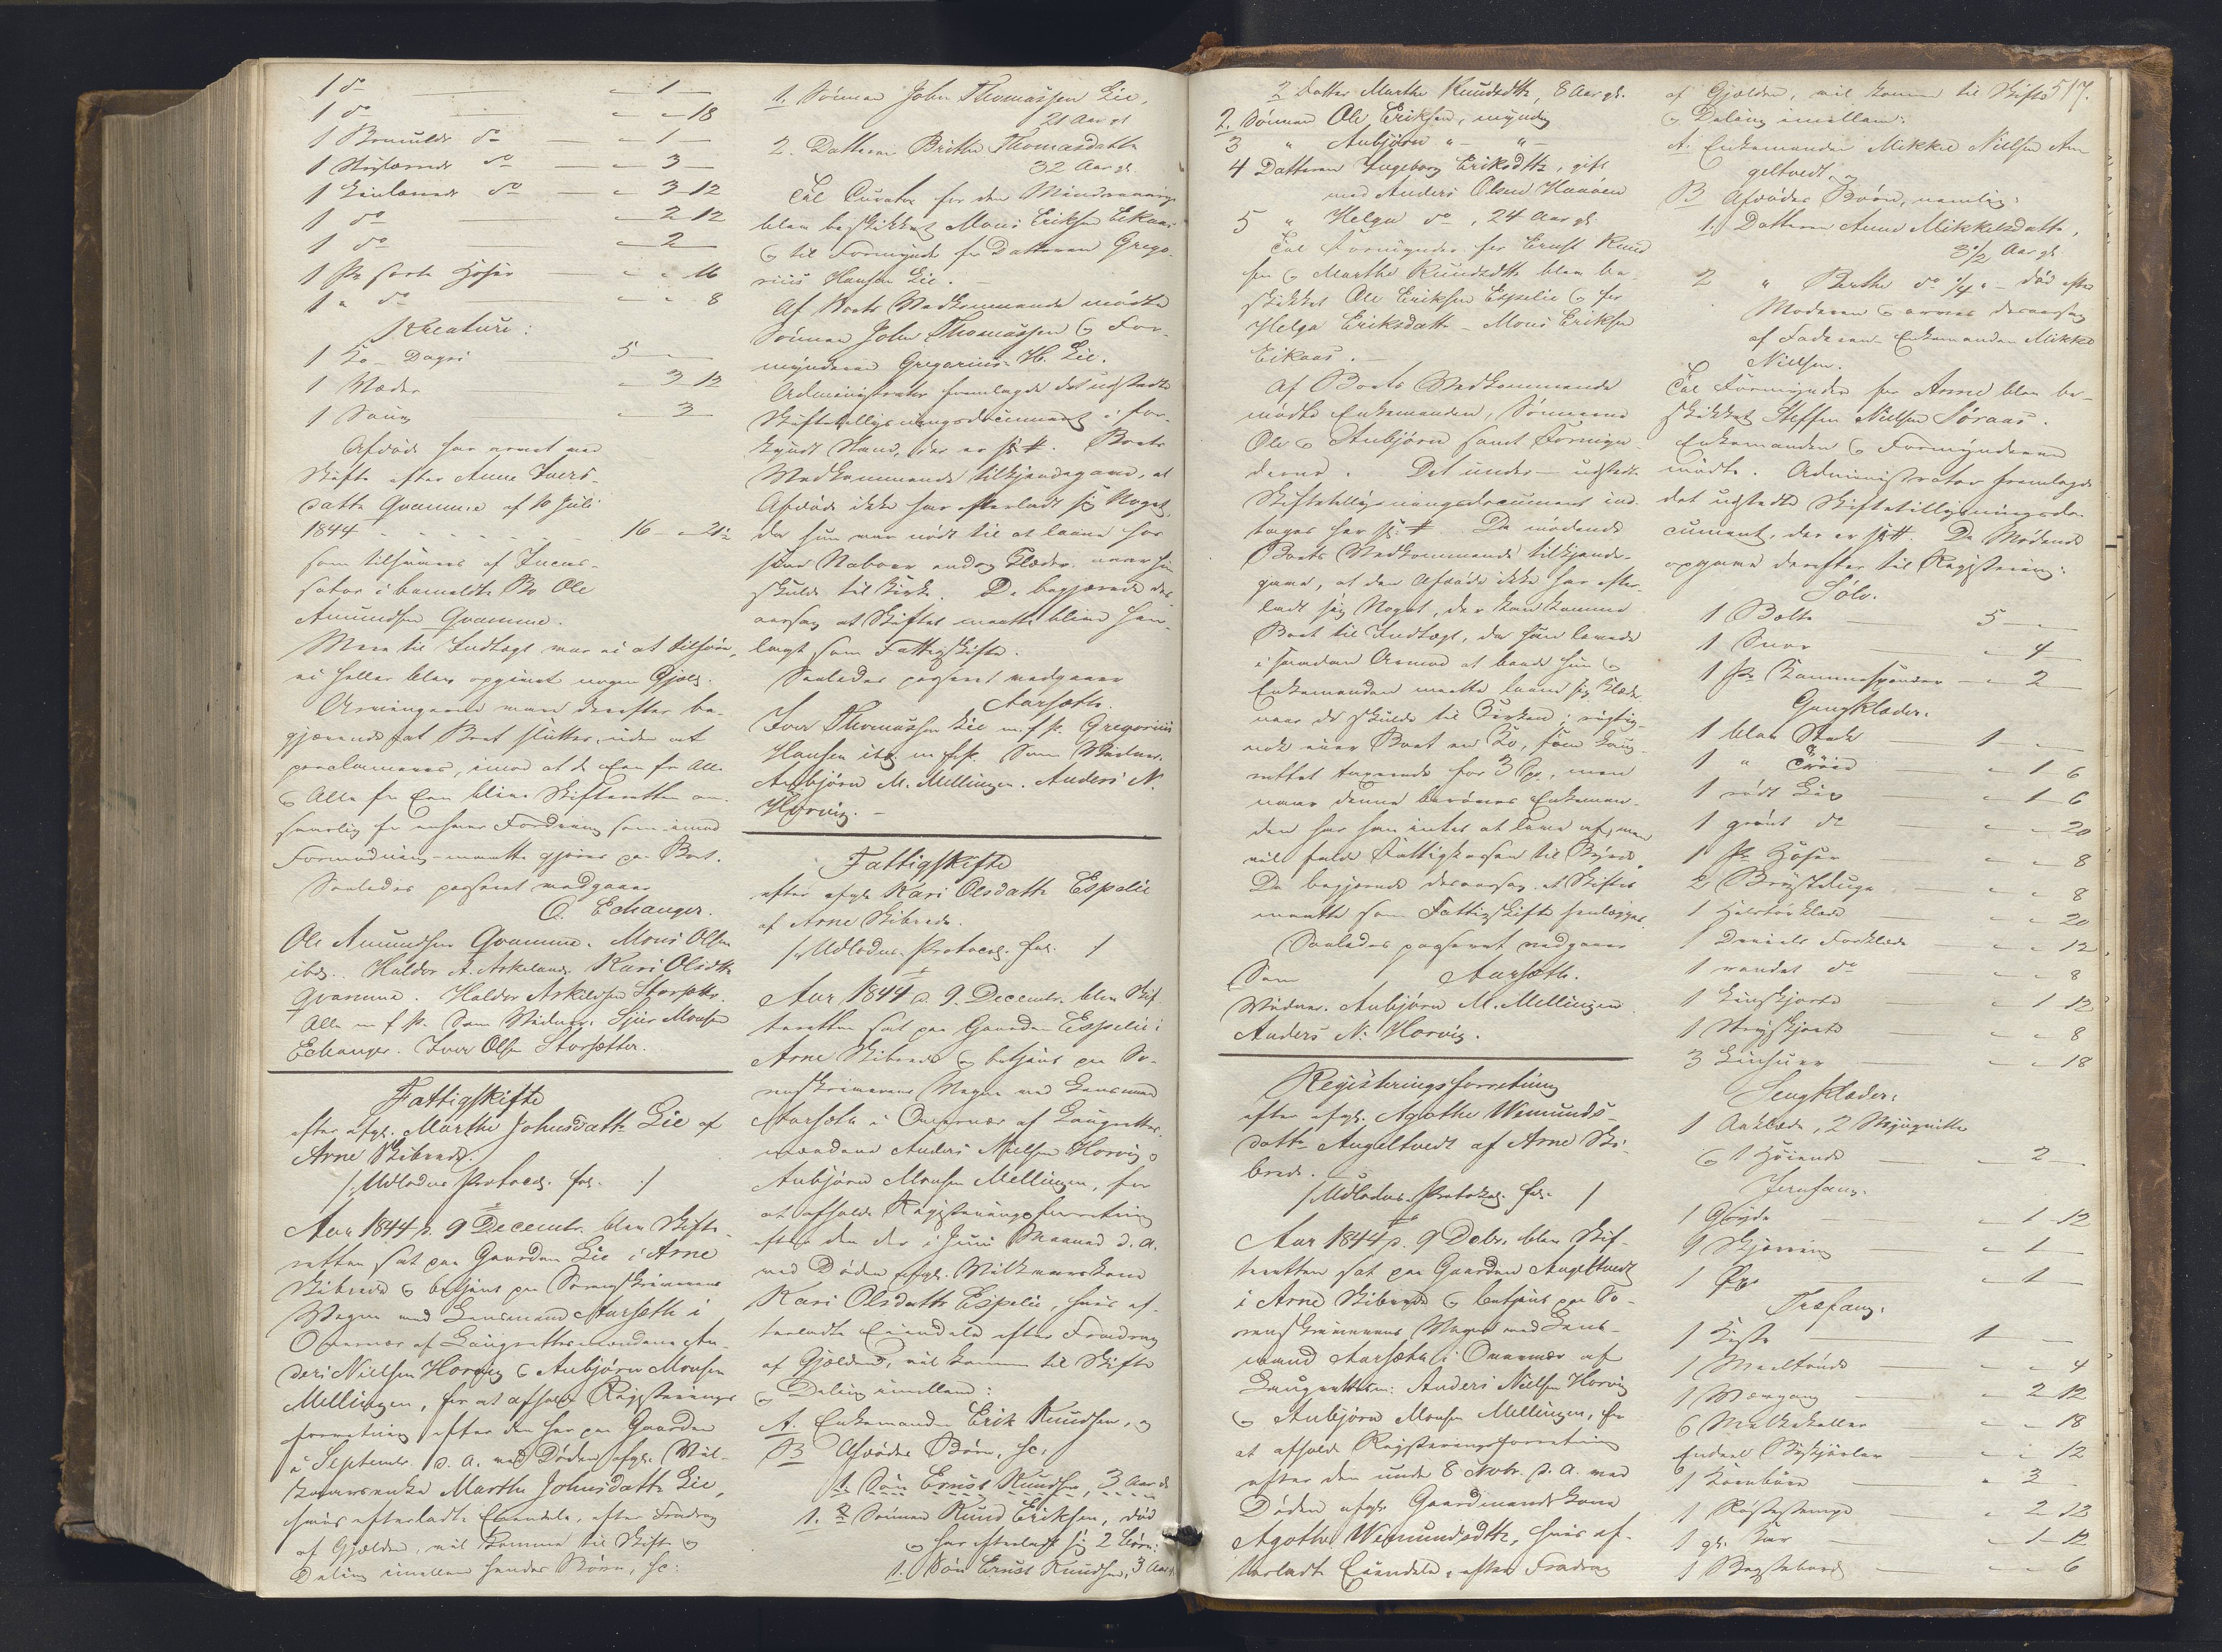 1 do — " 1 —
1 do — " " 18
1 Bomulds do — " 1 —
1 do — " 3 —
1 do — " 3 12
1 do — " 2 12
1 do — " 2 —
1 Pr sorte Hoser — " " 16
1 " do — " " 8
Kreature:
1 Ko Dagri 5 — —
1 Væder " 3 12
1 Sau " 3 —
Afdøde har arvet ved
Skifte efter Anne Ivers-
datter Qvamme af 10 Juli
1844 16 " 21½
som tilsvares af Incas-
sator i bemeldte Bo Ole
Amundsen Qvamme.
Mere til Indtægt var ei at tilføre,
ei heller blev opgivet nogen Gjæld.
Arvingerne vare derefter be-
gjærende at Boet sluttes, uden at
proclameres, imod at de Een for Alle
og Alle for Een blive Skifteretten an-
svarlig for enhver Fordring som imod
Formodning maatte gjøres paa Boet.
Saaledes passeret vedgaaer
O. Echanger.
Ole Amundsen Qvamme. Mons Olsen
ibd. Haldor A. Askeland. Kari Olsdtr
Qvamme. Haldor Askeldsen Storsetter.
Alle m. f. P. Som Vidner: Sjur Monsen
Echanger. Iver Olsen Storsætter.
Fattigskifte
efter afgl. Marthe Johnsdatter Lie af
Arne Skibrede.
/: Udlodns. Protocol fol. :/
Aar 1844 d. 9 Decembr. blev Skifte-
retten sat paa Gaarden Lie i Arne
Skibrede og betjent paa Sorenskriverens
Vegne ved Lensmand Aarsæth i
Overvær af Laugrettesmændene An-
ders Nielsen Horvig og Anbjørn Monsen
Mellingen, for at afholde Registrerings-
forretning efter den her paa Gaarden
i Septembr. d. A. ved Døden afgl.
Marthe Johnsdatter Lie,
hvis efterladte Eiendele, efter Fradrag
af Gjælden, vil komme til Skifte og
Deling imellem hendes Børn, sc:
1. Sønnen John Thomassen Lie,
21 Aar gl.
2. Datteren Brithe Thomasdatter
32 Aar gl.
Til Curator for den Mindreaarige
blev beskikket Mons Eriksen Eikaas
og til Formynder for Datteren Grego-
rius Hansen Lie.
Af Boets Vedkommende mødte
Sønnen John Thomassen og For-
mynderen Gregorius H. Lie.
Administrator fremlagde det udstedte
Skiftetillysningsdocument i for-
kyndt Stand, der er #. Boets
Vedkommende tilkjendegave, at
Afdøde ikke har efterladt sig Noget,
da hun var nødt til at laane hos
sine Naboer endog Klæder, naar hun
skulde til Kirke. De begjærede des-
aarsag at Skiftet maatte blive hen-
lagt som Fattigskifte.
Saaledes passeret vedgaaer
Aarsæth.
Iver Thomassen Lie m. f. P. Gregorius
Hansen ibd. m. f. P. Som Vidner:
Anbjørn M. Mellingen. Anders N.
Horvig. —
Fattigskifte
efter afgl. Kari Olsdatter Espelie
af Arne Skibrede.
/: Udlodns. Protocol fol. :/
Aar 1844 d. 9. Decembr. blev Skif-
teretten sat paa Gaarden Espelie i
Arne Skibrede og betjent paa So-
renskriverens Vegne ved Lensmand
Aarsæth i Overvær af Laugrettes-
mændene Anders Nielsen Horvig og
Anbjørn Monsen Mellingen, for
at afholde Registreringsforretning
efter den der i Juni Maaned d. A.
ved Døden afgl.
Kari Olsdatter Espelie, hvis ef-
terladte Eiendele efter Fradrag
af Gjælden, vil komme til Skifte
og Deling imellem:
A. Enkemanden Erik Knudsen, og
B Afdødes Børn, sc:
1. Søn Ernst Knudsen, 3 Aar gl
1. Sønnen Knud Eriksen, død
og har efterladt sig 2 Børn:
1. Søn Ernst Knudsen, 3 Aar gl.
2 Datter Marthe Knudsdtr, 8 Aar gl.
2. Sønnen Ole Eriksen, myndig
3 " Anbjørn " — " —
4 Datteren Ingeborg Eriksdtr, gift
med Anders Olsen Haaven
5 " Helga do, 24 Aar gl.
Til Formynder for Ernst Knud-
sen og Marthe Knudsdtr blev be-
skikket Ole Eriksen Espelie og for
Helga Eriksdatter — Mons Eriksen
Eikaas. —
Af Boets Vedkommende
mødte Enkemanden, Sønnerne
Ole og Anbjørn samt Formyn-
derne. Det under — udstedte
Skiftetillysningsdocument ind-
tages her #. De mødende
Boets Vedkommende tilkjende-
gave, at den Afdøde ikke har efter-
ladt sig Noget, der kan komme
Boet til Indtægt, da hun levede
i saadan Armod at baade hun og
Enkemanden maatte laane sig Klæder
naar de skulde til Kirken; rigtig-
nok eier Boet en Ko, som Laug-
rettet taxerede for 3 Spd., men
naar denne berøves Enkeman-
den har han intet at leve af, men
vil falde Fattigkassen til Byrde.
De begjærede desaarsag at Skiftet
maatte som Fattigskifte henlægges.
Saaledes passeret vedgaaer
Som Aarsæth.
Vidner: Anbjørn M. Mellingen
Anders N. Horvig.
Registeringsforretning
efter afgl. Agathe Wemunds-
datter Angeltvedt af Arne Ski-
brede.
/: Udlodns. Protokol fol. :/
Aar 1844 d. 9 Debr. blev Skif-
teretten sat paa Gaarden Angeltvedt
i Arne Skibrede og betjent paa So-
renskriverens Vegne ved Lens-
mand Aarsæth i Overvær af
Laugrettesm: Anders Nielsen Horvig
og Anbjørn Monsen Mellingen, for
at afholde Registreringsforretning
efter den under 8 Novbr. d. A. ved
Døden afgl. Gaardmandskone
Agathe Wemundsdtr, hvis ef-
terladte Eiendele, efter Fradrag
517.
af Gjælden, vil komme til Skifte
og Deling imellem:
A. Enkemanden Mikkel Nielsen An-
geltvedt, og
B Afdødes Børn, nemlig:
1. Datteren Anne Mikkelsdatter,
3½ Aar gl.
2 " Berthe do ¼ " — død efter
Moderen og arves desaarsag
af Faderen Enkemanden Mikkel
Nielsen.
Til Formynder for Anne blev be-
skikket Steffen Nielsen Søraas.
Enkemanden og Formynderen
mødte. Administrator fremlagde
det udstedte Skiftetillysningsdo-
cument, der er #. De Mødende
opgave derefter til Registrering:
Sølv.
1 Bælte — 5 — —
1 Snor — " 4 —
1 Pr — " 2 —
Gangklæder.
1 blaa Stak — 1 — —
1 " Trøie — " 1 6
1 rødt Liv — " 1 6
1 grønt do — " " 20
1 Pr Hoser — " " 8
2 Brystduge — " " 8
1 Halstørklæde — " " 20
1 Forklæde — " " 12
1 randet do — " " 8
1 Linskjorte — " 1 12
1 Strieskjorte — " " 8
3 Linhuer — " " 18
Sengklæder:
1 Aaklæde, 2
og 1 Høiende — " 2 —
Jernfang.
1 Gryde — " 1 12
1 — " 1 —
1 Øxe — " 1 —
Træfang:
1 Kiste — 1 — —
1 Meeltønde — " " 4
1 — " 2 12
6 Melkekoller — " " 18
Endeel — " " 12
1 — " 3 —
1 — " 2 12
1 gl. Kar — " 1 12
1 — " " 6